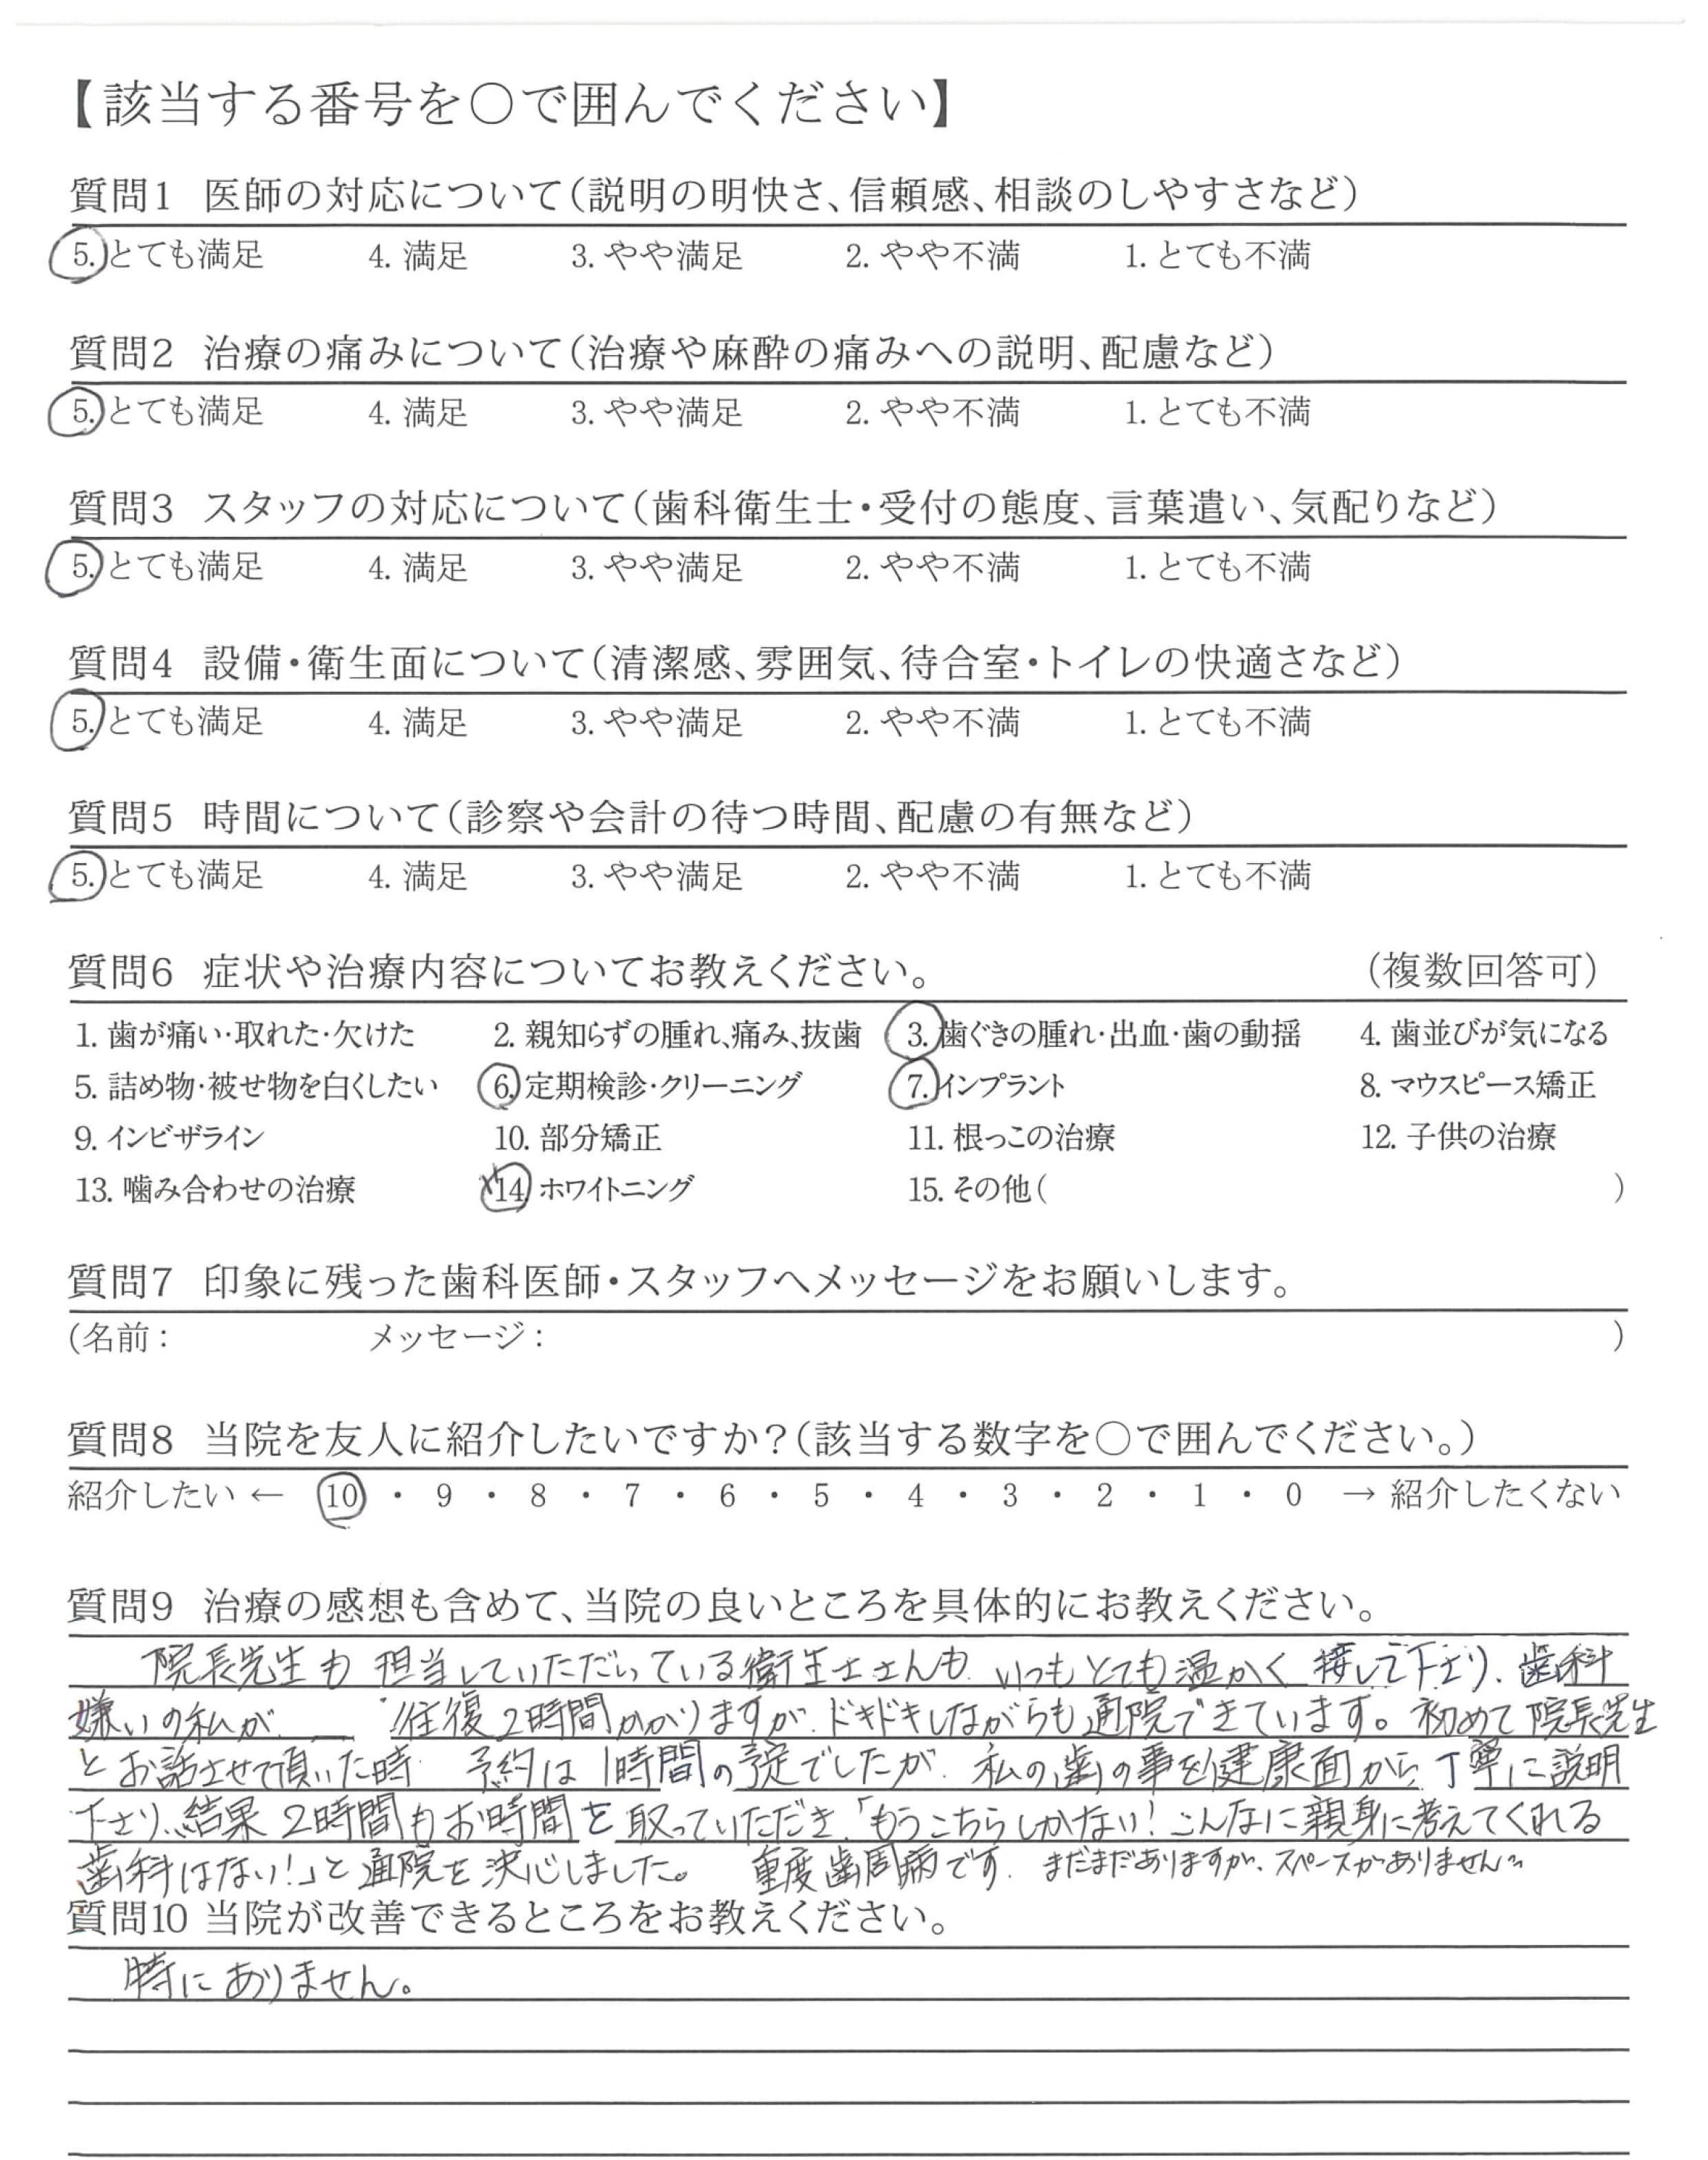 【該当する番号を〇で囲んでください】
質問1 医師の対応について（説明の明快さ、信頼感、相談のしやすさなど）
5. とても満足 4. 満足 3. やや満足 2. やや不満 1. とても不満
質問2 治療の痛みについて（治療や麻酔の痛みへの説明、配慮など）
5. とても満足 4. 満足 3. やや満足 2. やや不満 1. とても不満
質問3 スタッフの対応について（歯科衛生士・受付の態度、言葉遣い、気配りなど）
5. とても満足 4. 満足 3. やや満足 2. やや不満 1. とても不満
質問4 設備・衛生面について（清潔感、雰囲気、待合室・トイレの快適さなど）
5. とても満足 4. 満足 3. やや満足 2. やや不満 1. とても不満
質問5 時間について（診察や会計の待つ時間、配慮の有無など）
5. とても満足 4. 満足 3. やや満足 2. やや不満 1. とても不満
質問6 症状や治療内容についてお教えください。 （複数回答可）
1. 歯が痛い・取れた・欠けた 2. 親知らずの腫れ、痛み、抜歯 3. 歯ぐきの腫れ・出血・歯の動揺 4. 歯並びが気になる
5. 詰め物・被せ物を白くしたい 6. 定期検診・クリーニング 7. インプラント 8. マウスピース矯正
9. インビザライン 10. 部分矯正 11. 根っこの治療 12. 子供の治療
13. 噛み合わせの治療 14. ホワイトニング 15. その他（ ）
質問7 印象に残った歯科医師・スタッフへメッセージをお願いします。
（名前： メッセージ： ）
質問8 当院を友人に紹介したいですか？（該当する数字を〇で囲んでください。）
紹介したい ← 10 ・ 9 ・ 8 ・ 7 ・ 6 ・ 5 ・ 4 ・ 3 ・ 2 ・ 1 ・ 0 → 紹介したくない
質問9 治療の感想も含めて、当院の良いところを具体的にお教えください。
院長先生も 担当していただいている衛生士さんも、いつもとても温かく 接して下さり、歯科
嫌いの私が、 往復2時間かかりますが、ドキドキしながらも通院できています。初めて院長先生
とお話させて頂いた時 予約は 1時間の予定でしたが、私の歯の事を健康面から丁寧に説明
下さり、結果 2時間もお時間を 取っていただき、「もうこちらしかない！こんなに親身に考えてくれる
歯科はない！」と通院を決心しました。 重度歯周病です。 まだまだありますが、スペースがありません〜
質問10 当院が改善できるところをお教えください。
特にありません。